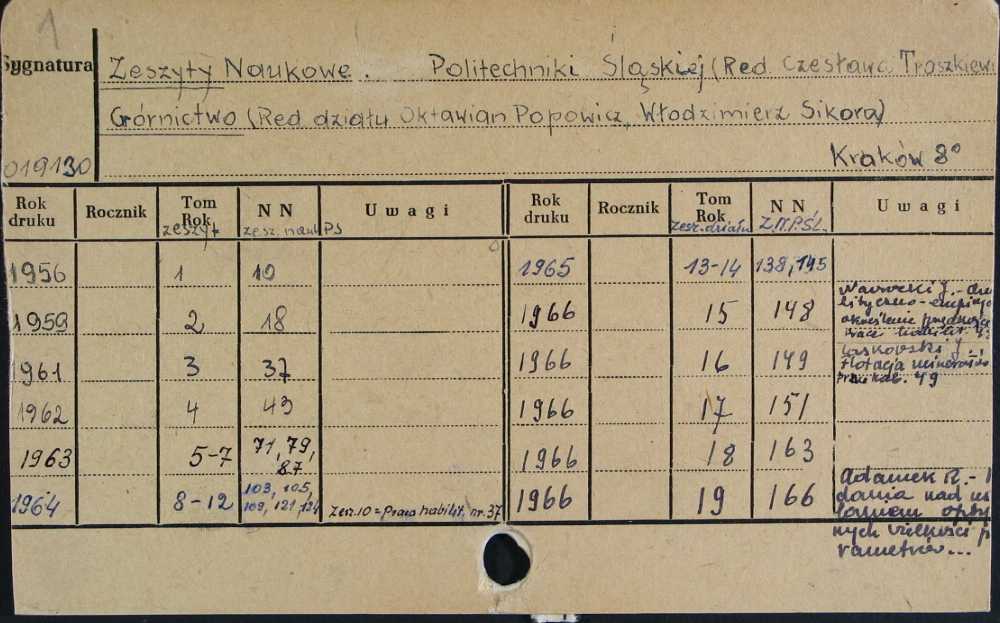 1
Sygnatura
Zeszyty Naukowe. Politechniki Śląskiej (Red. Czesław Troszkiew
Górnictwo (Red. działu Oktawian Popowicz, Włodzimierz Sikora)
019130
Kraków 8°
Rok druku Rocznik Tom Rok N N Uwagi Rok druku Rocznik Tom Rok N N Uwagi
zeszyt zesz. nauk PS zesz. działu Z.N.P.Śl.
1956 1 10 1965 13-14 138, 145
1959 2 18 1966 15 148 Nawrocki J. -
1961 3 37 1966 16 149 Laskowski J.
flotacja
Prace hab. 49
1962 4 43 1966 17 151
1963 5-7 71, 79, 87 1966 18 163
1964 8-12 103, 105, 109, 121, 124 Zesz. 10 = Praca habilit. nr. 37 1966 19 166 Adamek R. -
dania nad us
laniem opty
nych wielkości p
rametrów...